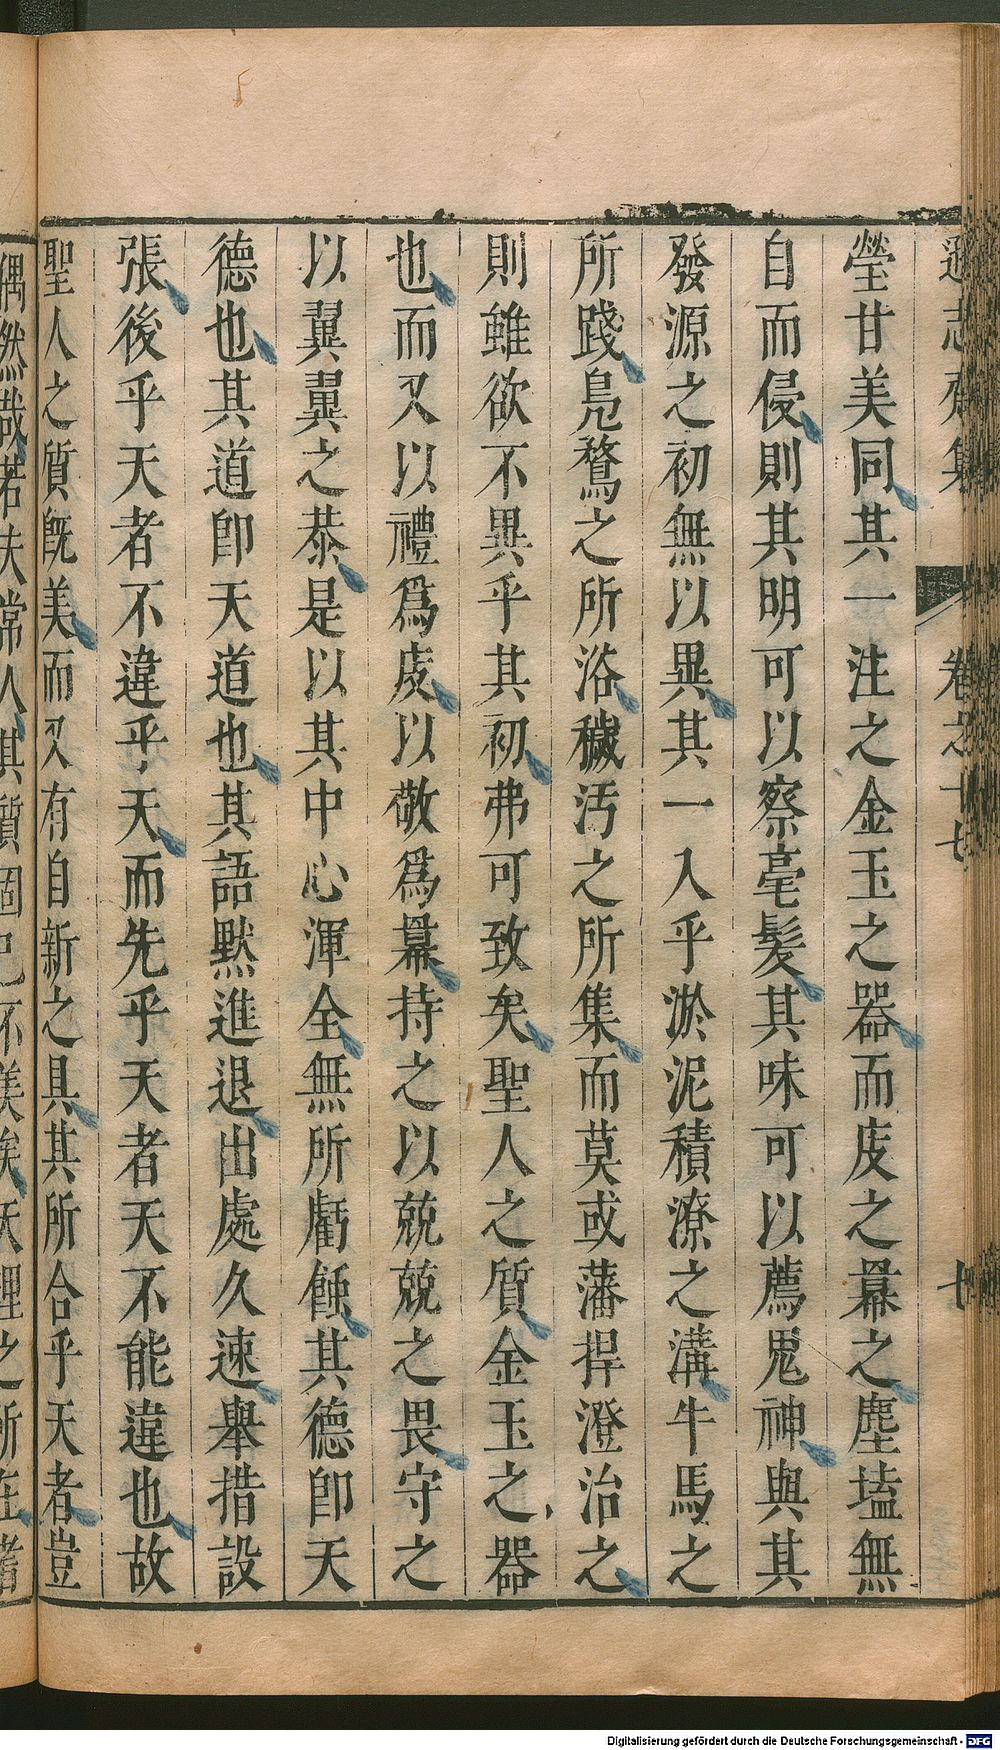 遜志齋集
卷之十七
七
瑩甘美同其一注之金玉之器而庋之羃之塵壒無
自而侵則其明可以察亳髮其味可以薦鬼神與其
發源之初無以異其一入乎淤泥積潦之溝牛馬之
所踐鳧鶩之所浴穢汚之所集而莫或藩捍澄治之
則雖欲不異乎其初弗可致矣聖人之質金玉之器
也而又以禮爲庋以敬爲羃持之以兢兢之畏守之
以翼翼之恭是以其中心渾全無所虧餙其德卽天
德也其道卽天道也其語默進退出處久速舉措設
張後乎天者不違乎天而先乎天者天不能違也故
聖人之質旣美而又有自新之具其所合乎天者豈
偶然哉若夫常人其質固已不美矣天理之所在者
Digitalisierung gefördert durch die Deutsche Forschungsgemeinschaft - DFG